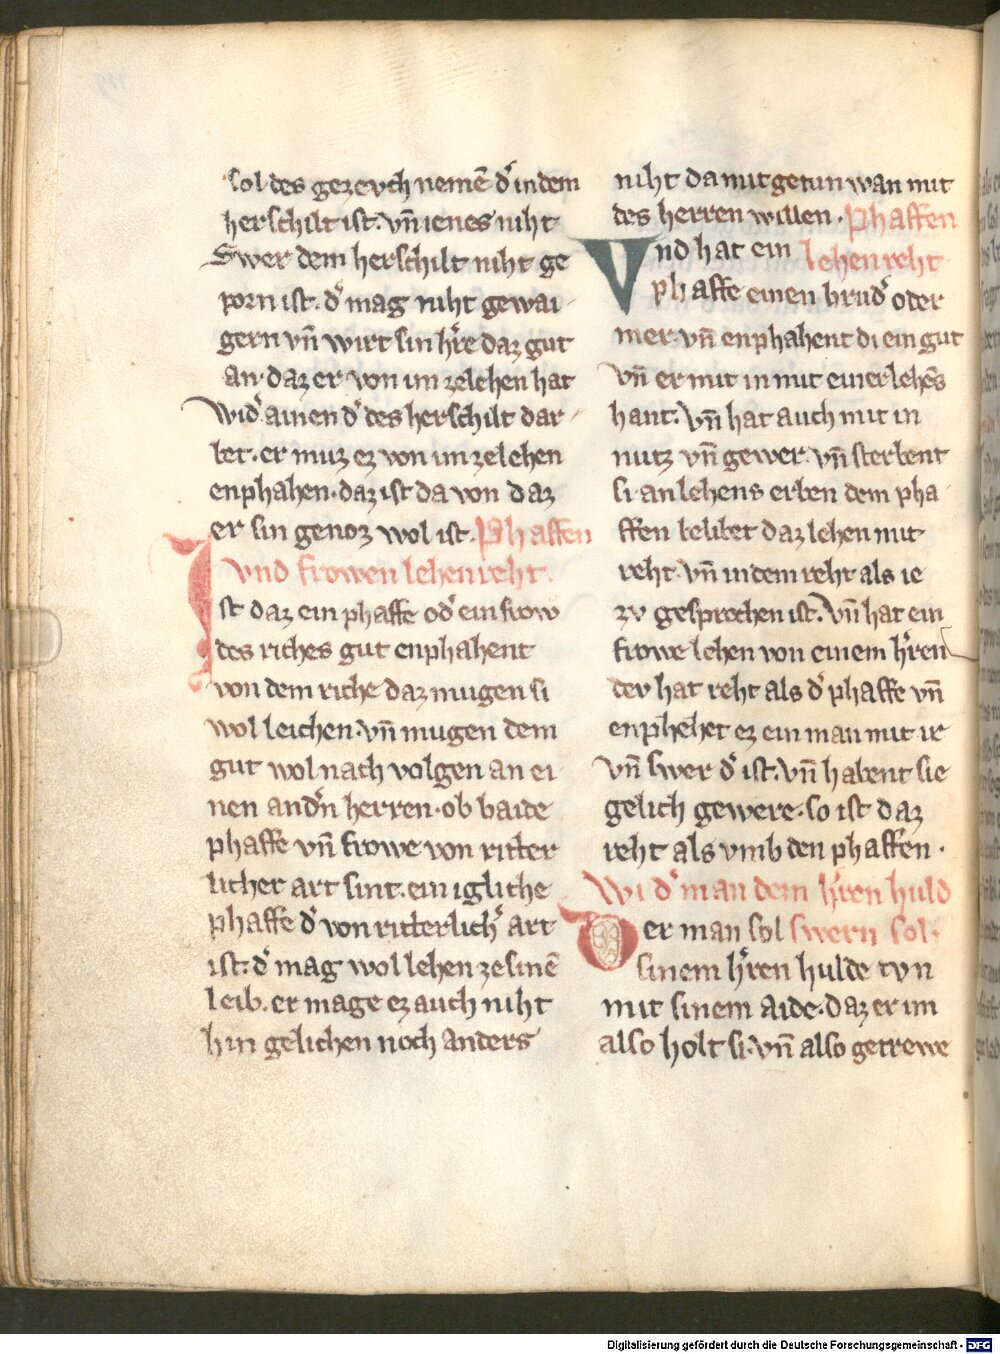 sol des gezevch nemē d͛ in dem
herschilt ist. vn̄ ienes niht
Swer dem herschilt niht ge
porn ist. d͛ mag niht gewai-
gern vn̄ wirt sin h͛re daz gut
an. daz er von im zelehen hat
Wid͛ ainen d͛ des herschilt dar-
bet. er muz ez von im zelehen
enphahen. daz ist da von daz
er sin genoz wol ist. Phaffen
vnd frowen lehenreht.
Ist daz ein phaffe od͛ ein frow
des riches gut enphahent
von dem riche daz mugen si
wol leichen. vn̄ mugen dem
gut wol nach volgen an ei
nen and͛n herren. ob baide
phaffe vn̄ frowe von ritter
licher art sint. ein igliche
phaffe d͛ von ritterlich͛ art
ist. d͛ mag wol lehen ze sinē
leib. er mage ez auch niht
hin gelichen noch anders
niht da mit getun wan mit
des herren willen. Phaffen
Vnd hat ein lehenreht
phaffe einen brud͛ oder
mer. vn̄ enphahent di ein gut
vn̄ er mit in mit einer lehēs
hant. vn̄ hat auch mit in
nutz vn̄ gewer. vn̄ sterbent
si an lehens erben dem pha
ffen belibet daz lehen mit
reht. vn̄ in dem reht als ie
zv gesprochen ist. vn̄ hat ein
frowe lehen von einem h͛ren
dev hat reht als d͛ phaffe vn̄
enphehet ez ein man mit ir
vn̄ swer d͛ ist. vn̄ habent sie
gelich gewere. so ist daz
reht als vmb den phaffen.
Wi d͛ man dem h͛ren huld
Der man sol swern sol.
sinem h͛ren hulde tvn
mit sinem aide. daz er im
also holt si. vn̄ also getrewe
Digitalisierung gefördert durch die Deutsche Forschungsgemeinschaft - DFG